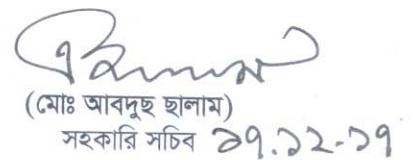 (মোঃ আবদুছ ছালাম)
সহকারি সচিব ১৭.১২-১৭